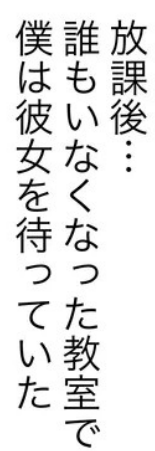 放課後…
誰もいなくなった教室で
僕は彼女を待っていた